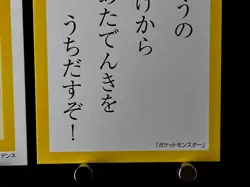 うの
げから
めたでんきを
うちだすぞ！
『ポケットモンスター』
デンネ